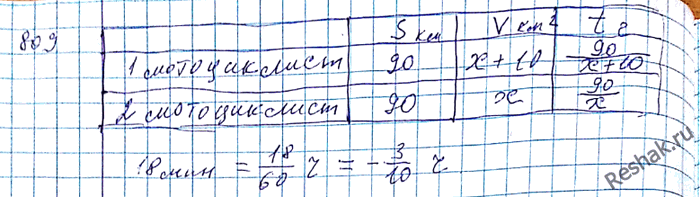 809
S км V км² t г
1 мотоциклист 90 x + 10 90/(x+10)
2 мотоциклист 90 x 90/x
18 мин = 18/60 ч = - 3/10 ч.
Reshak.ru